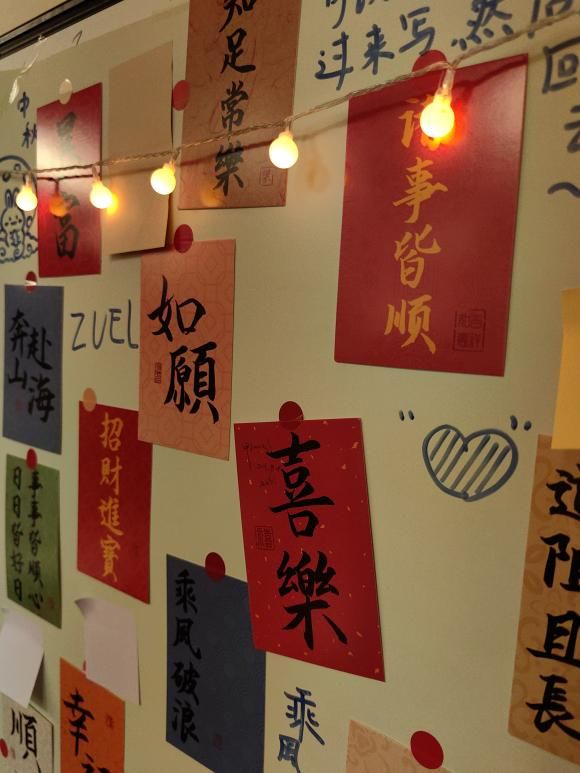 知足常樂
过来写,然后
回去~
中秋
富
诸事皆顺
如願
奔赴
山海
ZUEL
招財進寶
喜樂
事事皆順心
日日皆好日
乘风破浪
道阻且長
乘风
順
幸福